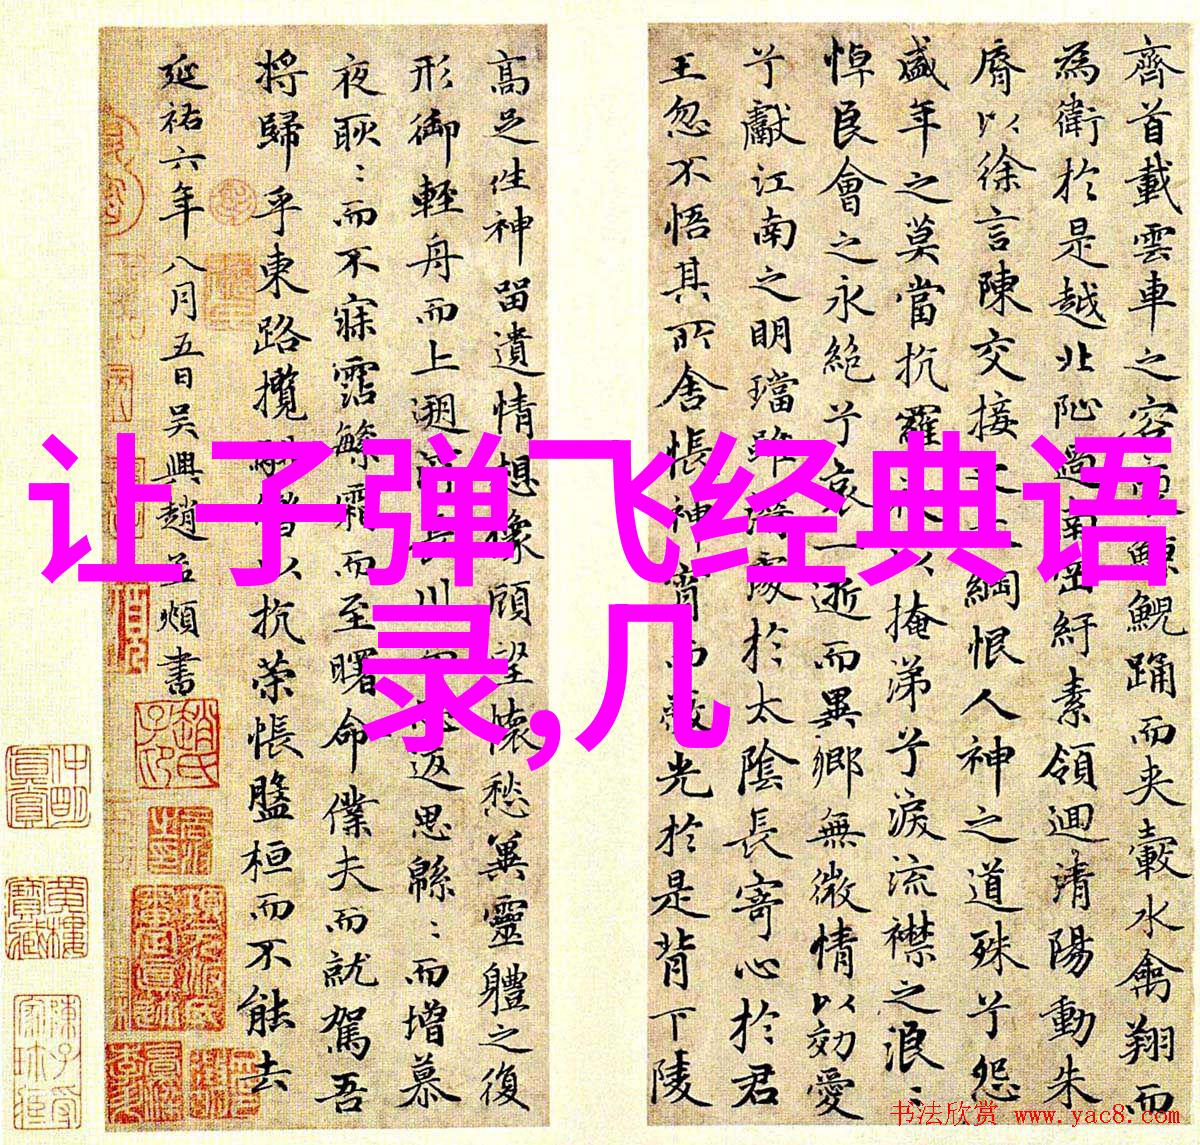 让子弹飞经典语
录,几
齊首載雲車之容鯨鯢踊而夾轂水禽翔而
為衛於是越北沚過南岡紆素領迴清陽動朱
脣以徐言陳交接之綱恨人神之道殊兮怨
盛年之莫當抗羅以掩涕兮淚流襟之浪〻
悼良會之永絕兮哀一逝而異鄉無微情以効愛
兮獻江南之明璫雖潛處於太陰長寄心於君
王忽不悟其所舍悵神宵而蔽光於是背下陵
高足性神留遺情想像顧望懷愁冀靈軆之復
形御輕舟而上遡浮長川返思緜〻而增慕
夜耿〻而不寐霑繁霜而至曙命僕夫而就駕吾
將歸乎東路攬轡以抗策悵盤桓而不能去
延祐六年八月五日吳興趙孟頫書
书法欣赏 www.yac8.com